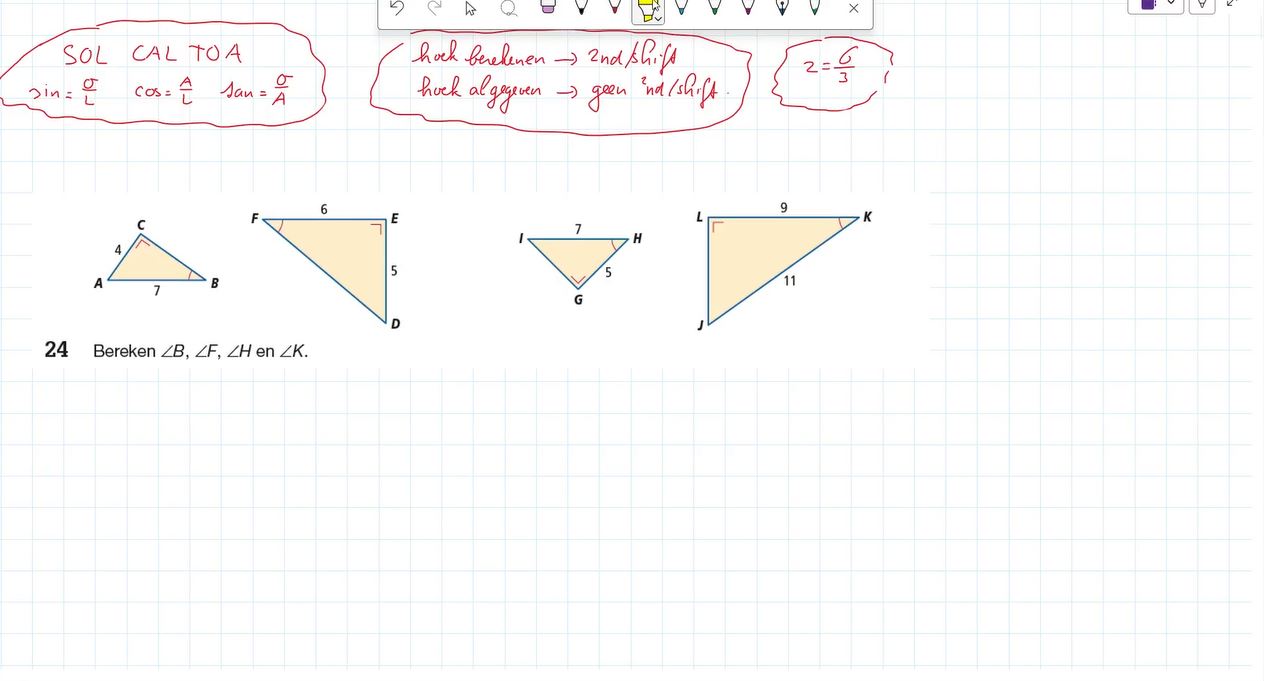 SOL CAL TOA
sin = O/L cos = A/L tan = O/A
hoek berekenen → 2nd/shift
hoek al gegeven → geen 2nd/shift.
2 = 6/3
C
4
A
7
B
F
6
E
5
D
I
7
H
5
G
L
9
K
11
J
24 Bereken ∠B, ∠F, ∠H en ∠K.